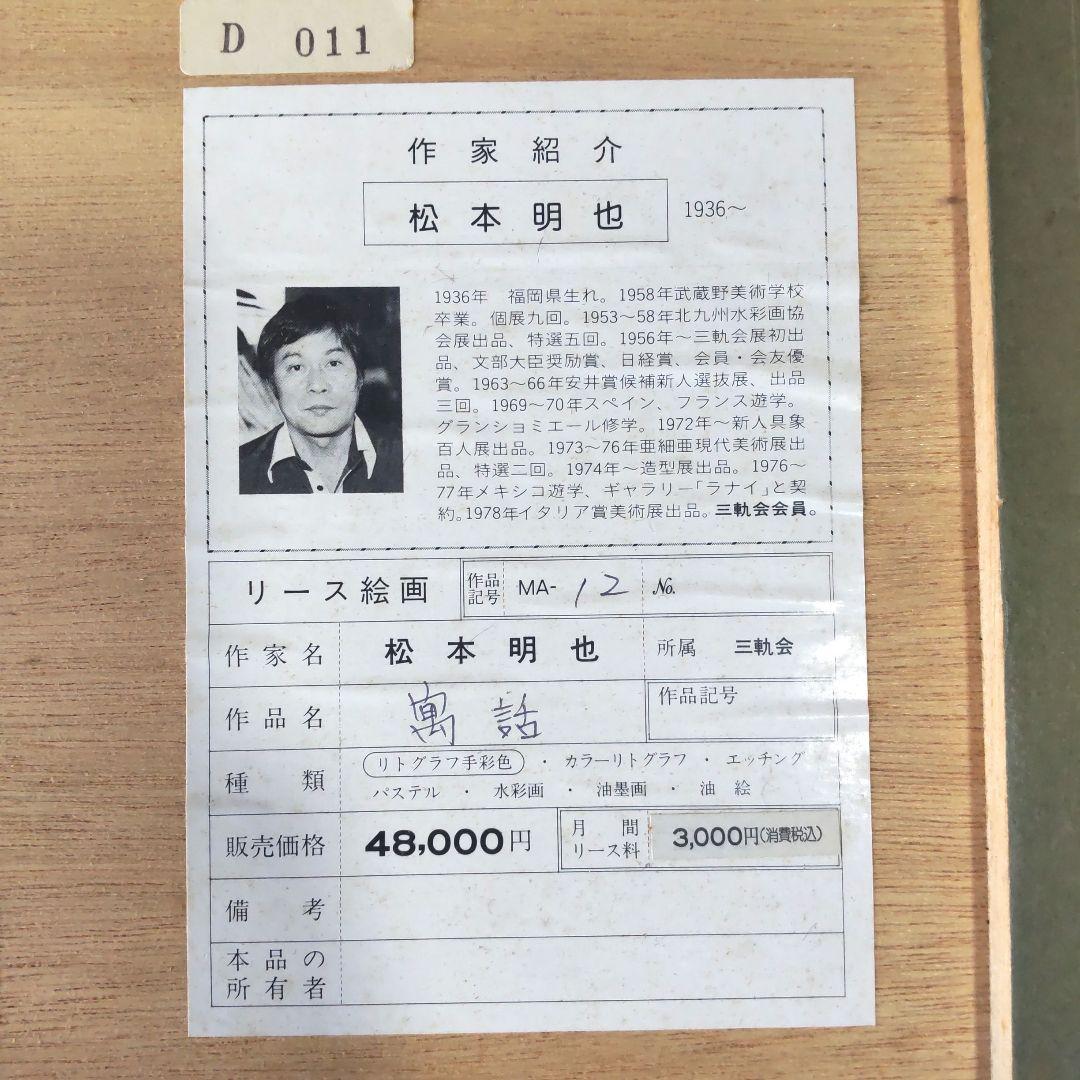 D 011
作家紹介
松本明也 1936〜
1936年　福岡県生れ。1958年武蔵野美術学校
卒業。個展九回。1953〜58年北九州水彩画協
会展出品、特選五回。1956年〜三軌会展初出
品、文部大臣奨励賞、日経賞、会員・会友優
賞。1963〜66年安井賞候補新人選抜展、出品
三回。1969〜70年スペイン、フランス遊学。
グランショミエール修学。1972年〜新人具象
百人展出品。1973〜76年亜細亜現代美術展出
品、特選二回。1974年〜造型展出品。1976〜
77年メキシコ遊学、ギャラリー「ラナイ」と契
約。1978年イタリア賞美術展出品。三軌会会員。
リース絵画 作品記号 MA-12 No.
作家名 松本明也 所属 三軌会
作品名 寓話 作品記号
種類 リトグラフ手彩色・カラーリトグラフ・エッチング
パステル・水彩画・油墨画・油絵
販売価格 48,000円 月間リース料 3,000円(消費税込)
備考
本品の
所有者